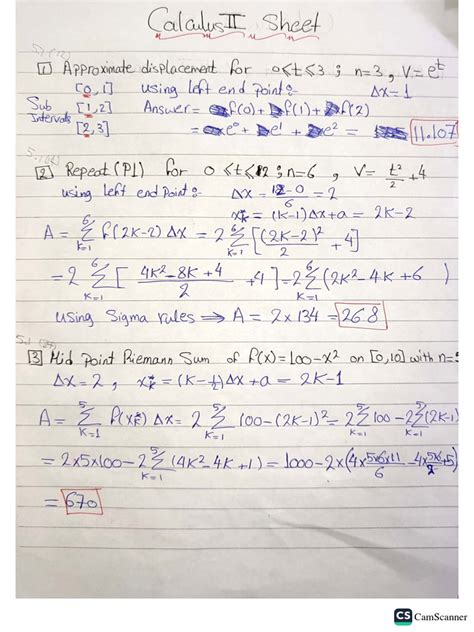 Calculus II Sheet
1 Approximate displacement for 0≤t≤3 ; n=3, V=e^t
[0,1] using left end point:- Δx=1
Sub [1,2] Answer = f(0) + f(1) + f(2)
Intervals [2,3] = e^0 + e^1 + e^2 = 11.107
2 Repeat (P1) for 0≤t≤12 ; n=6 , V= t^2/2 +4
using left end Point :- Δx = 12-0/6 = 2
x_k^* = (K-1)Δx+a = 2K-2
A = 6Σ_{K=1} f(2K-2) Δx = 2 6Σ_{K=1} [(2K-2)^2/2 +4]
= 2 6Σ_{K=1} [4K^2-8K+4/2 +4] = 2 6Σ_{K=1} (2K^2-4K+6)
using Sigma rules ⇒ A = 2x134 = 268
3 Mid Point Riemann Sum of f(x)=100-x^2 on [0,10] with n=
Δx=2 , x_k^* = (K-1/2)Δx+a = 2K-1
A = 5Σ_{K=1} f(x_k^*) Δx = 2 5Σ_{K=1} 100-(2K-1)^2 = 2 5Σ_{K=1} 100 - 2 5Σ_{K=1} (2K-1)
= 2x5x100 - 2 5Σ_{K=1} (4K^2-4K+1) = 1000-2x(4x 5x6x11/6 - 4x 5x6/2 +5)
= 670
CS CamScanner